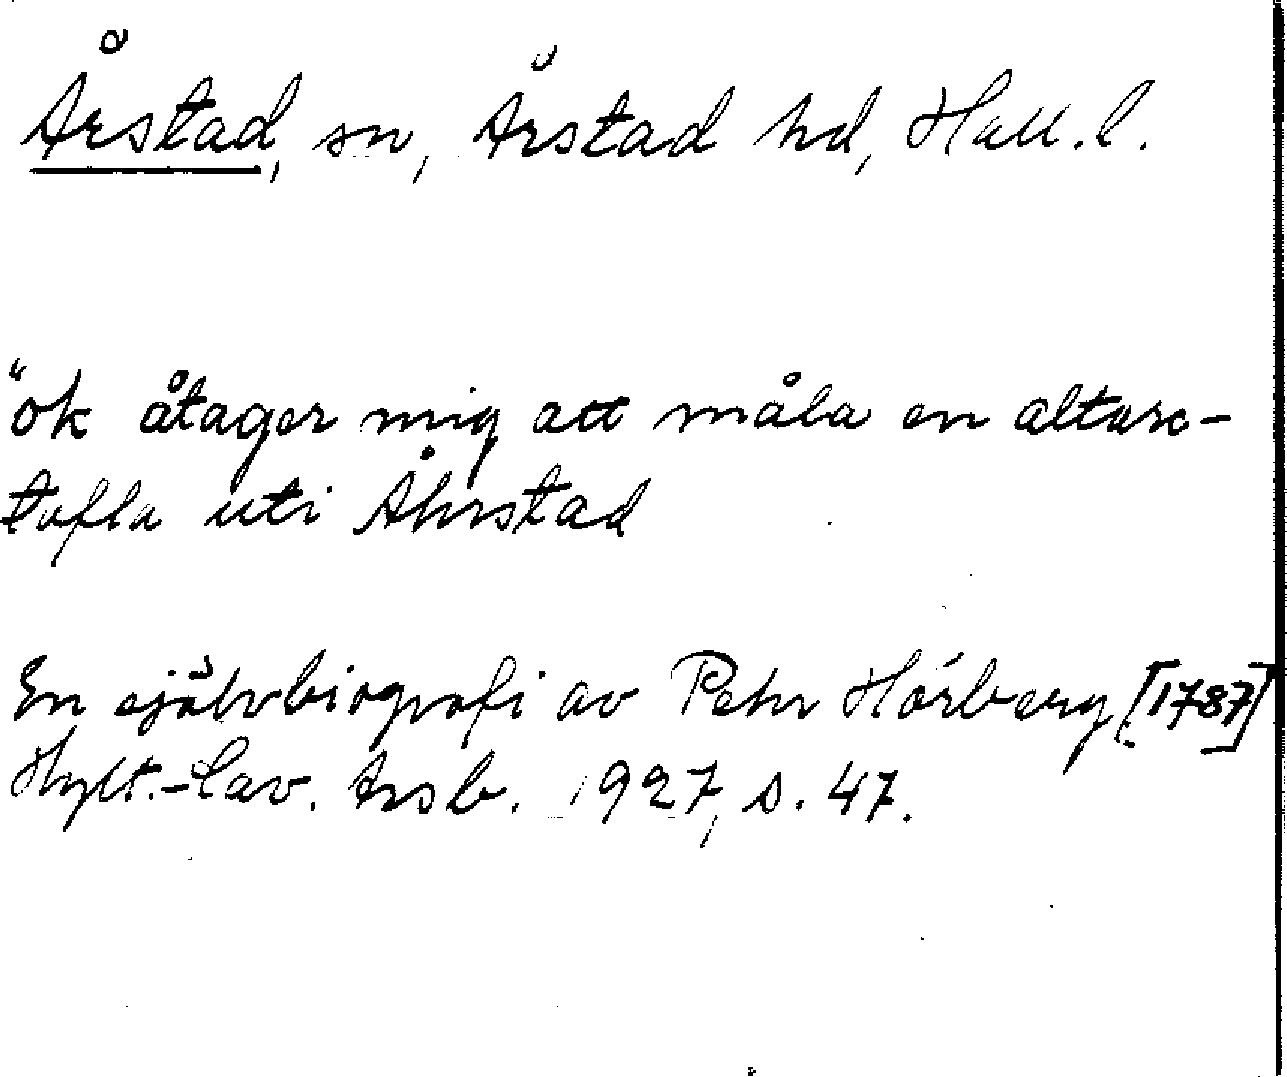 Årstad, sn, Årstad hd, Hall. l.
"ok åtager mig att måla en altare-
tafla uti Åhrstad
En självbiografi av Pehr Hörberg [1787]
Hylt.-Cav. Årsb. 1927, s. 47.